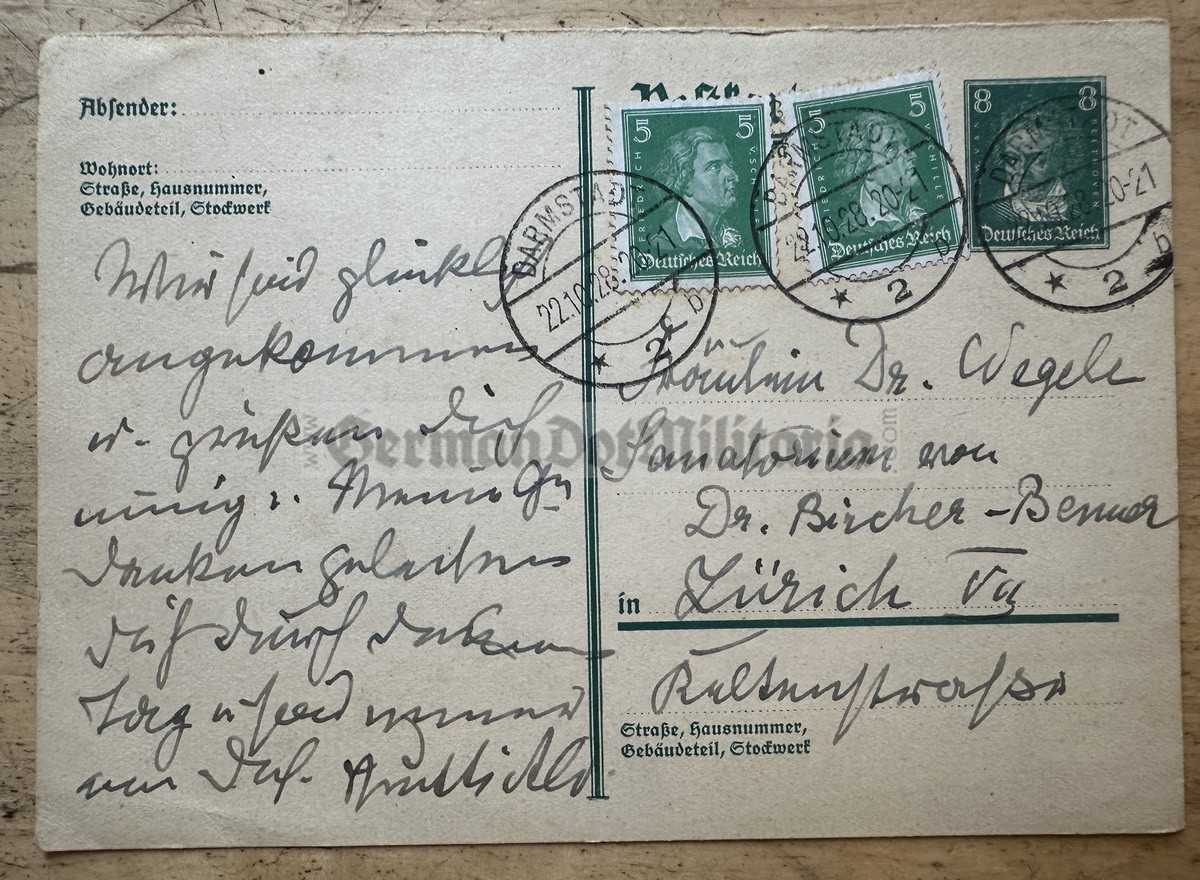 Absender:
Wohnort:
Straße, Hausnummer,
Gebäudeteil, Stockwerk
Wir sind glückl.
angekommen
u. grüßen Dich
innig. Meine Ge-
danken geleiten
Dich durch den
Tag u sind immer
5 5
FRIEDRICH V. SCHILLER
Deutsches Reich
5 5
FRIEDRICH V. SCHILLER
Deutsches Reich
8 8
Deutsches Reich
DARMSTADT
22.10.28.20-21
* 2 b
DARMSTADT
22.10.28.20-21
* 2 b
DARMSTADT
22.10.28.20-21
* 2 b
Fräulein Dr. Wegele
Sanatorium von
Dr. Bircher-Benner
in Zürich
Keltenstrasse
Straße, Hausnummer,
Gebäudeteil, Stockwerk
www.GermanDotMilitaria.com